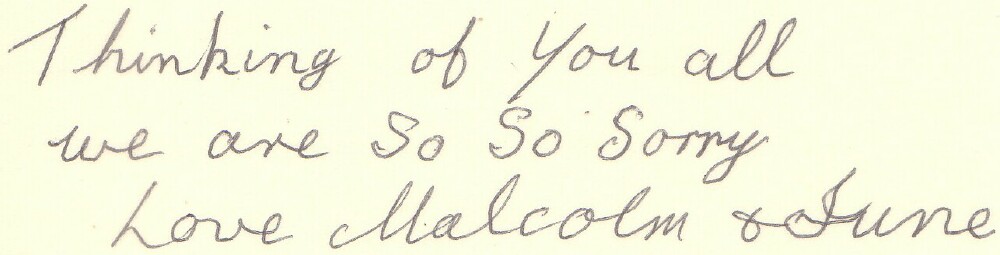 Thinking of You all
we are So So Sorry
Love Malcolm & June